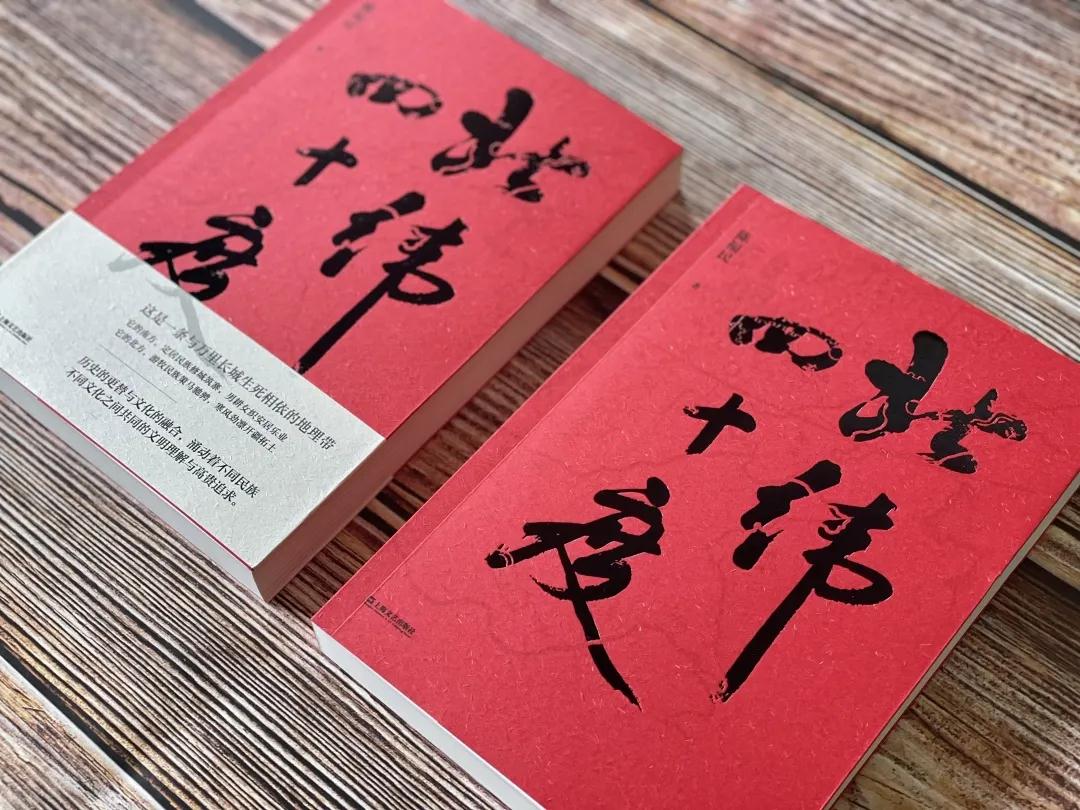 北纬
四十度
这是一条与万里长城生死相依的地理带
它的南方，定居民族修城筑塞，男耕女织安居乐业
它的北方，游牧民族策马驰骋，寒风劲凛开疆拓土
历史的更替与文化的融合，涌动着不同民族
不同文化之间共同的文明理解与高贵追求。
上海文艺出版社
北纬
四十度
上海文艺出版社